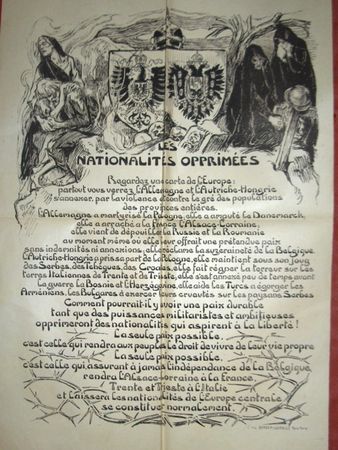 LES
NATIONALITÉS OPPRIMÉES
Regardez une carte de l'Europe :
partout vous verrez l'Allemagne et l'Autriche-Hongrie
s'annexer, par la violence et contre le gré des populations
des provinces entières.
L'Allemagne a martyrisé la Pologne, elle a amputé le Danemarck,
elle a arraché à la France l'Alsace-Lorraine,
elle vient de dépouiller la Russie et la Roumanie
au moment même où elle leur offrait une prétendue paix
sans indemnités ni annexions, elle réclame la suzeraineté de la Belgique.
L'Autriche-Hongrie a pris sa part de la Pologne, elle maintient sous son joug
des Serbes, des Tchèques, des Croates, elle fait régner la terreur sur les
terres Italiennes de Trente et de Trieste, elle s'est annexé peu de temps avant
la guerre la Bosnie et l'Herzégovine, elle aide les Turcs à égorger les
Arméniens, les Bulgares à exercer leurs cruautés sur les paysans Serbes.
Comment pourrait-il y avoir une paix durable
tant que des puissances militaristes et ambitieuses
opprimeront des nationalités qui aspirent à la liberté !
La seule paix possible,
c'est celle qui rendra aux peuples le droit de vivre de leur vie propre
La seule paix possible,
c'est celle qui, assurant à jamais l'indépendance de la Belgique,
rendra l'Alsace-Lorraine à la France,
Trente et Trieste à l'Italie
et laissera les nationalités de l'Europe centrale
se constituer normalement.